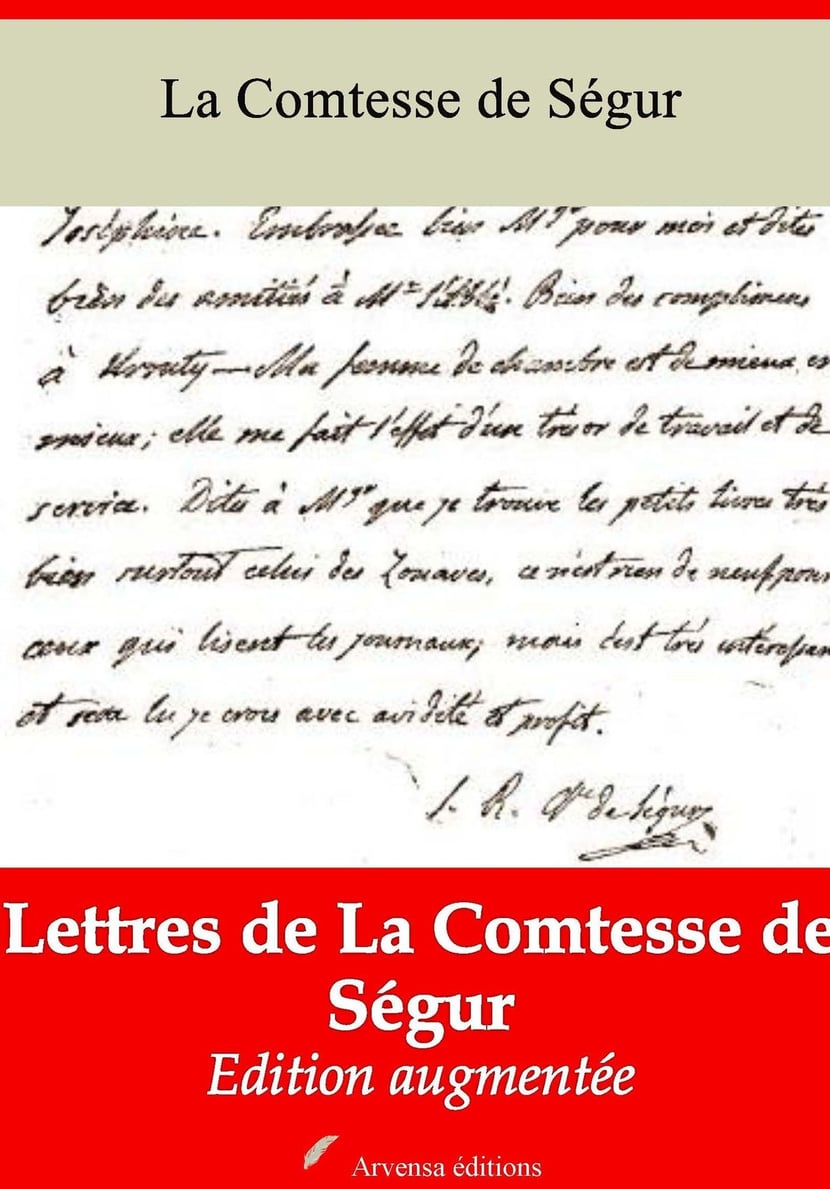 La Comtesse de Ségur
Joséphine. Embrassez bien Mgr pour moi et dites
bien des amitiés à Mr l'Abbé. Bien des complimens
à Ma femme de chambre est de mieux en
mieux; elle me fait l'effet d'un trésor de travail et de
service. Dites à Mgr que je trouve les petits livres très
bien surtout celui des Zouaves, ce n'est rien de neuf pour
ceux qui lisent les journaux; mais c'est très intéressan
et sera lu je crois avec avidité et profit.
S. R. Ctsse de Ségur
Lettres de La Comtesse de
Ségur
Edition augmentée
Arvensa éditions